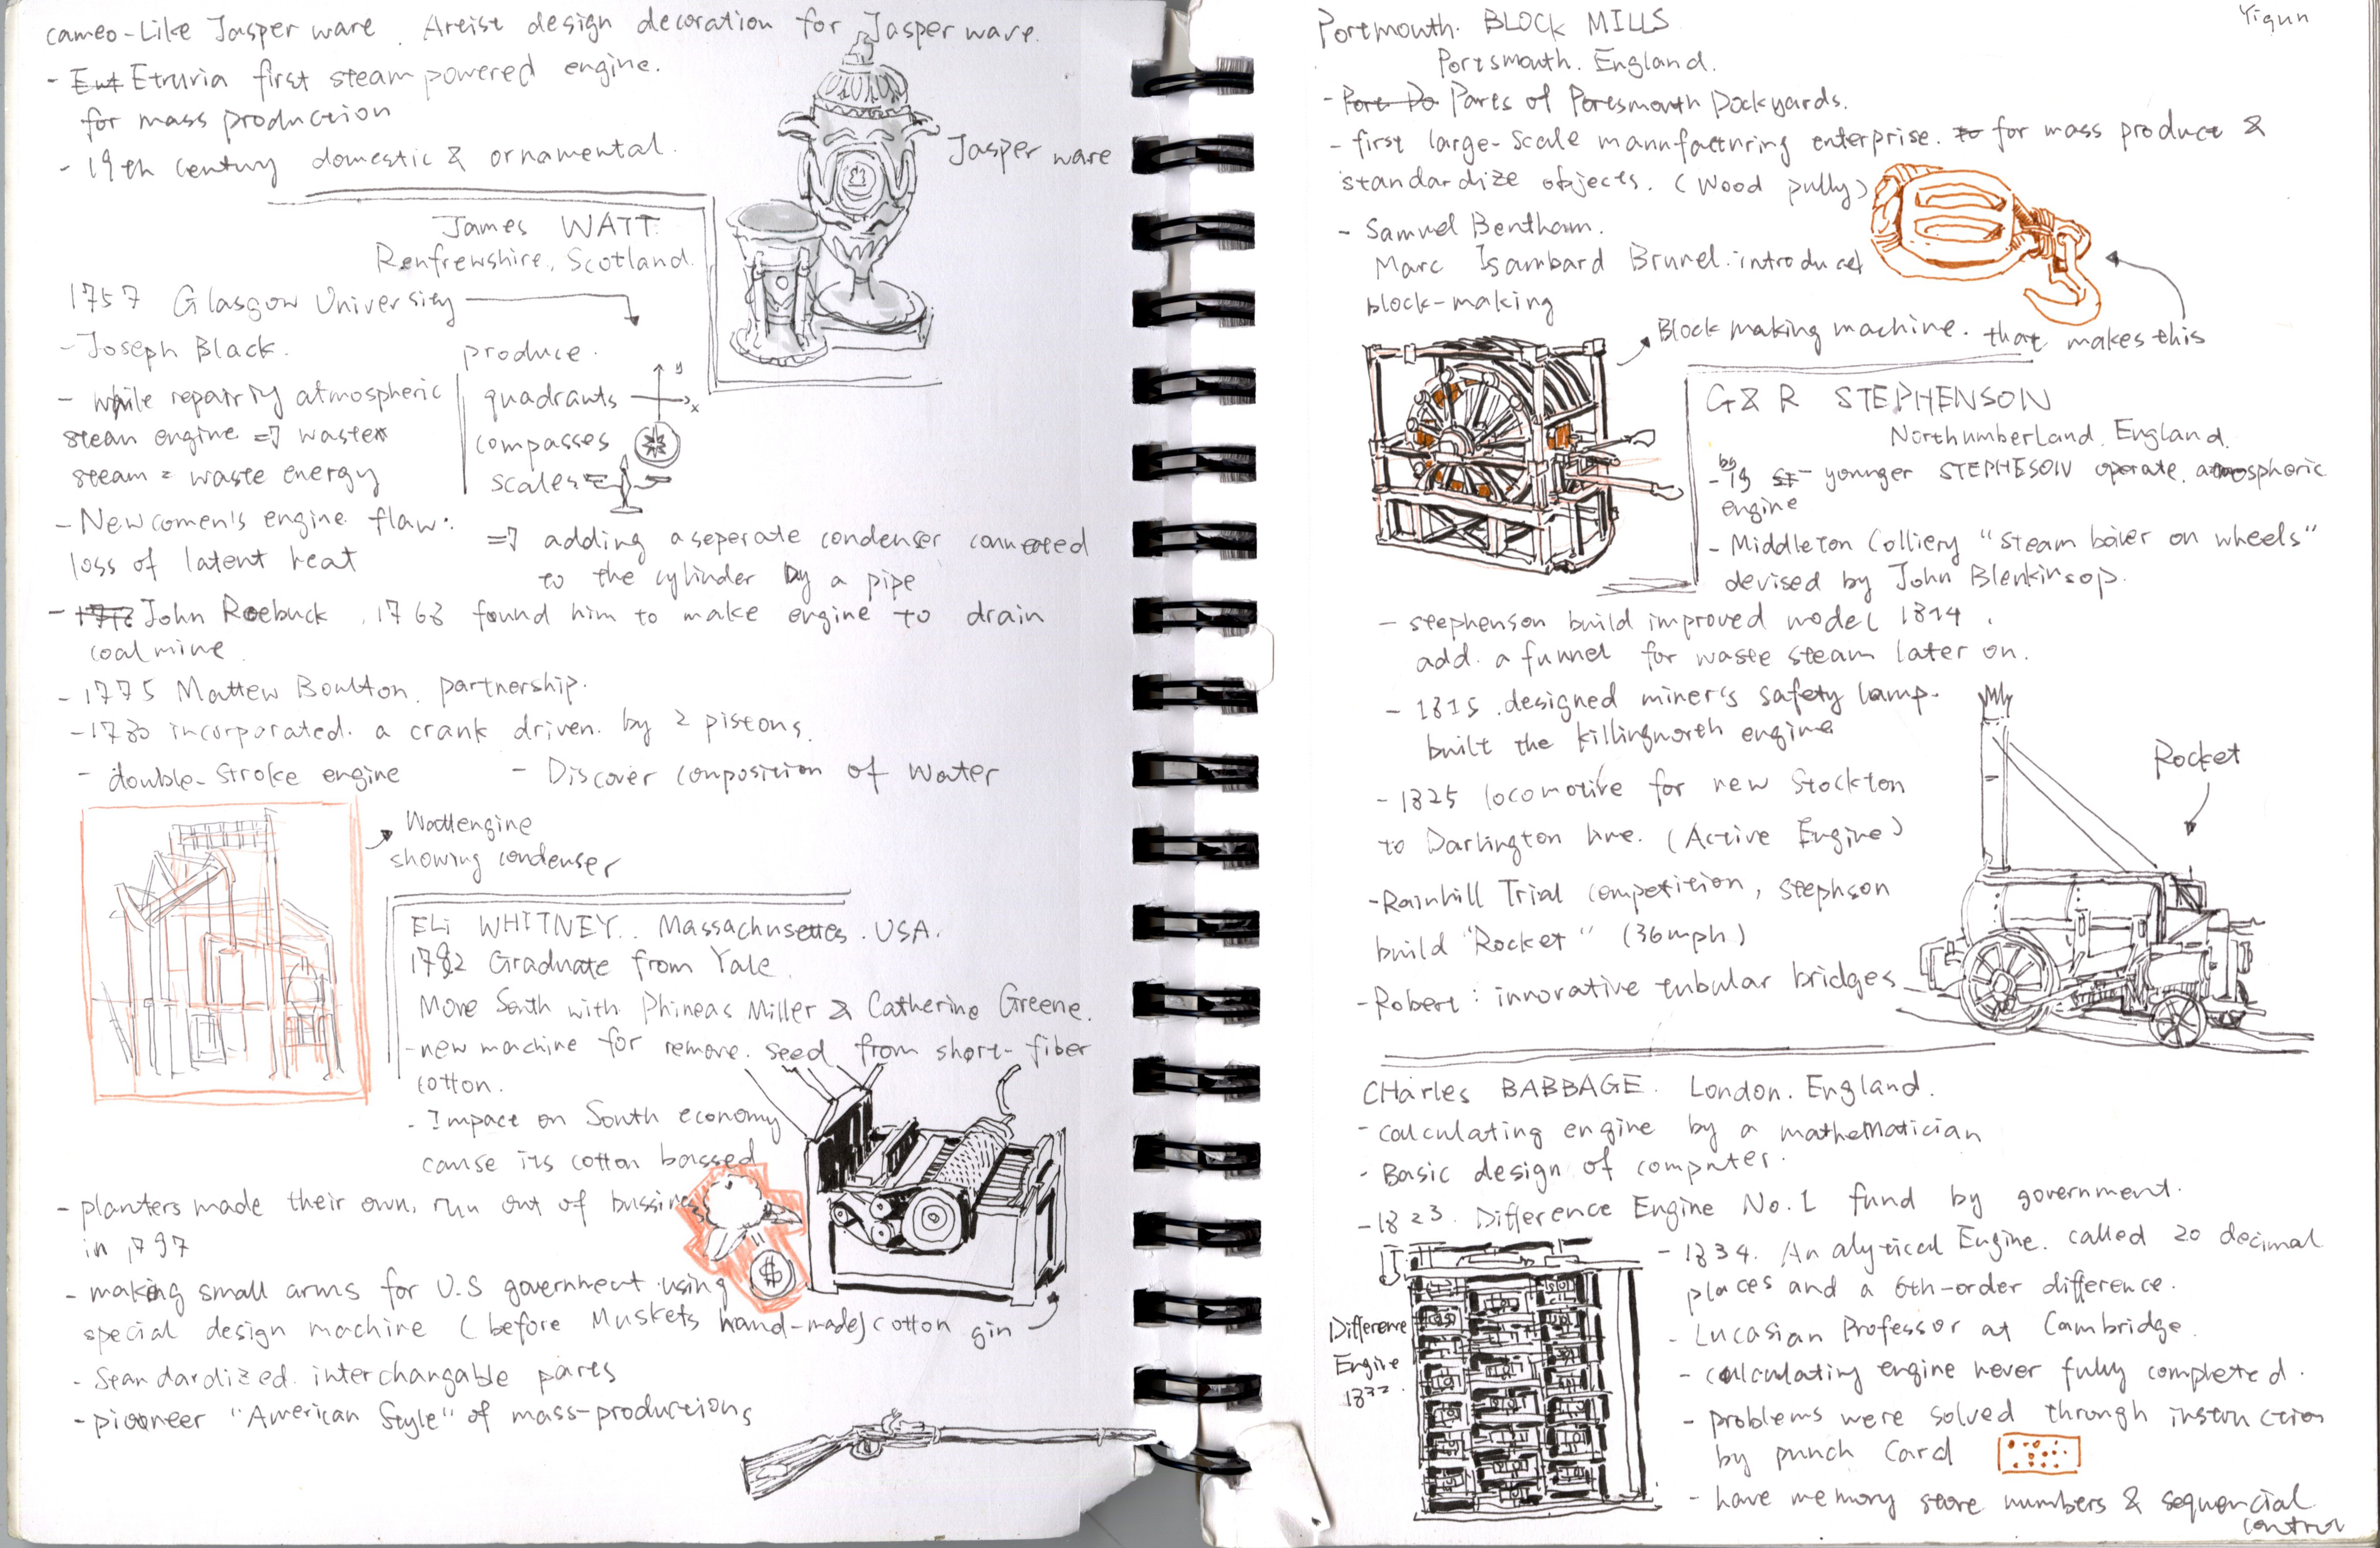 cameo-Like Jasper ware. Artist design decoration for Jasper ware.
- Eut Etruria first steam powered engine.
for mass production
- 19th century domestic & ornamental.
Jasper ware
James WATT.
Renfrewshire, Scotland.
1757 Glasgow University
- Joseph Black.
- while repairing atmospheric
steam engine => waste
steam = waste energy
produce.
quadrants
y
x
compasses
scales
- Newcomen's engine flaw:
loss of latent heat
=> adding a seperate condenser connected
to the cylinder by a pipe
- John Roebuck, 1768 found him to make engine to drain
coal mine
- 1775 Mattew Boulton. partnership.
- 1780 incorporated. a crank driven. by 2 pistons.
- double-stroke engine
- Discover composition of water
Watt engine
showing condenser
ELi WHITNEY. Massachusettes. USA.
1792 Graduate from Yale.
Move South with Phineas Miller & Catherine Greene.
- new machine for remove. seed from short-fiber
cotton.
- Impact on South economy
cause its cotton bassed
- planters made their own, run out of bussine
in 1797
$
- making small arms for U.S government using
special design machine (before Muskets hand-made)
cotton gin
- Standardized. interchangable parts
- pioneer "American Style" of mass-productions
Yiqun
Portmouth. BLOCK MILLS
Portsmouth. England.
- Port Do Parts of Portsmouth Dockyards.
- first large-scale mannfacturing enterprise. to for mass product &
standardize objects. (Wood pully)
- Samuel Bentham.
Marc Isambard Brunel. introduced
block-making
Block making machine. that makes this
G & R STEPHENSON
Northumberland, England.
by
- 19 younger STEPHESON operate. atmospheric
engine
- Middleton Colliery "steam boiler on wheels"
devised by John Blenkinsop.
- stephenson build improved model 1814.
add. a funnel for waste steam later on.
- 1815. designed miner's safety lamp.
built the killingworth engine
- 1825 locomotive for new Stockton
to Darlington line. (Active Engine)
- Rainhill Trial competition, stephson
build "Rocket" (36mph)
- Robert: innovative tubular bridges
Rocket
CHarles BABBAGE. London. England.
- calculating engine by a matheMatician
- Basic design of computer.
- 1823. Difference Engine No.1 fund by government.
- 1834. Analytical Engine. called 20 decimal
places and a 6th-order difference.
- Lucasian Professor at Cambridge.
- calculating engine never fully completed.
- problems were solved through instruction
by punch Card
- have memory store numbers & sequencial
control
Difference
Engine